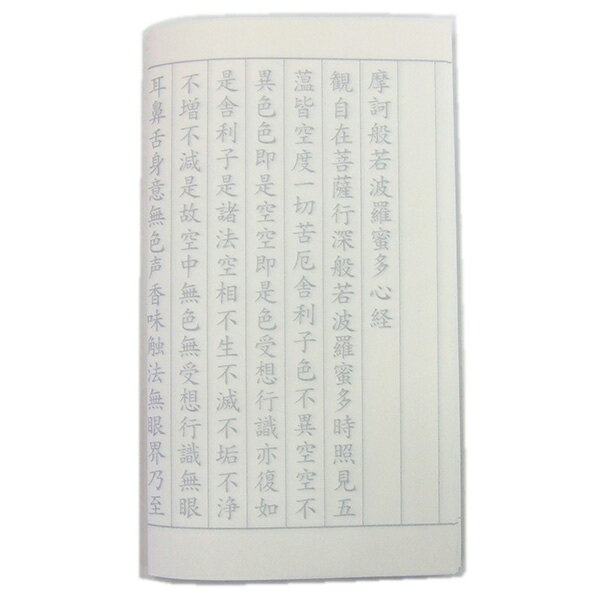 摩訶般若波羅蜜多心経
観自在菩薩行深般若波羅蜜多時照見五
薀皆空度一切苦厄舎利子色不異空空不
異色色即是空空即是色受想行識亦復如
是舎利子是諸法空相不生不滅不垢不浄
不増不減是故空中無色無受想行識無眼
耳鼻舌身意無色声香味触法無眼界乃至